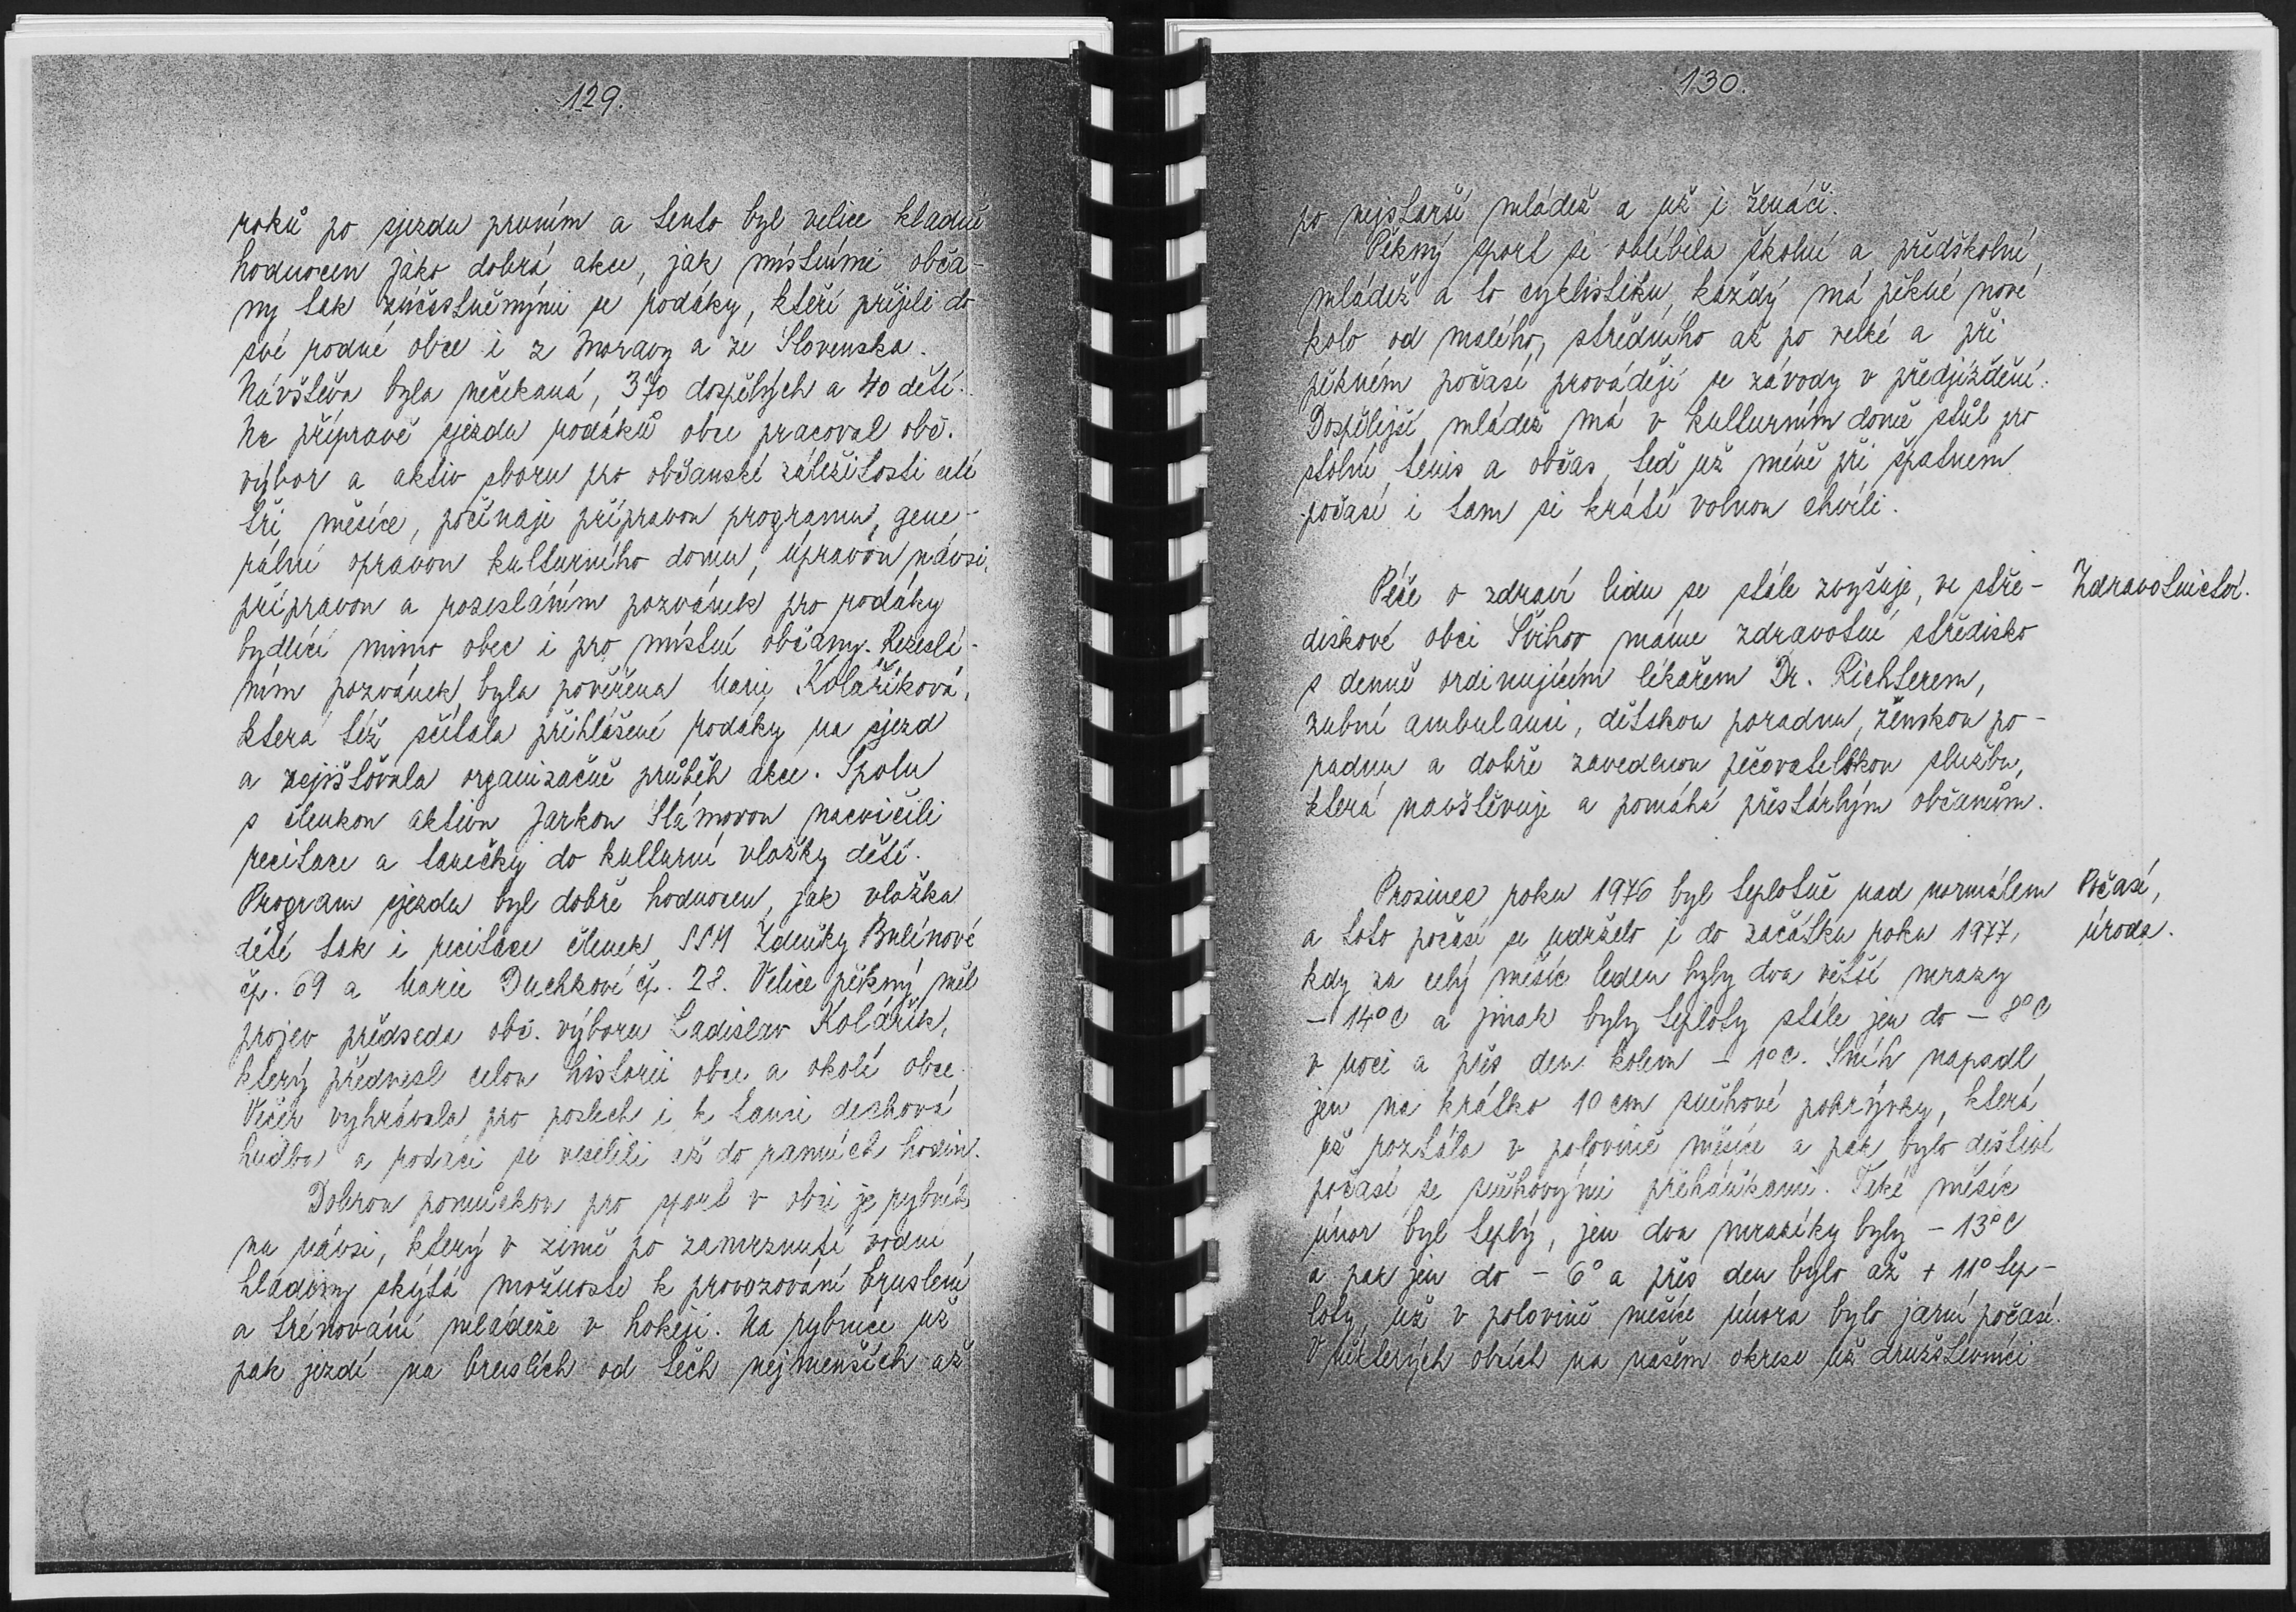 129.
roků po sjezdu prvním a tento byl velice kladně
hodnocen jako dobrá akce, jak místními obča-
ny tak zúčastněnými se rodáky, kteří přijeli do
své rodné obce i z Moravy a ze Slovenska.
Návštěva byla nečekaná, 370 dospělých a 40 dětí.
Na přípravě sjezdu rodáků obce pracoval obč.
výbor a aktiv sboru pro občanské záležitosti celé
tři měsíce, počínaje přípravou programu, gene-
rální opravou kulturního domu, úpravou návsi,
přípravou a rozesláním pozvánek pro rodáky
bydlící mimo obec i pro místní občany. Rozeslá-
ním pozvánek byla pověřena Marie Kolaříková,
která též sčítala přihlášené rodáky na sjezd
a zajišťovala organizačně průběh akce. Spolu
s členkou aktivu Jarkou Slámovou nacvičili
recitace a tanečky do kulturní vložky dětí.
Program sjezdu byl dobře hodnocen, jak vložka
dětí tak i recitace členek SSM Zdeňky Bulínové
čp. 69 a Marie Duchkové čp. 28. Velice pěkný měl
projev předseda obč. výboru Ladislav Kolářík,
který přednesl celou historii obce a okolí obce.
Večer vyhrávala pro poslech i k tanci dechová
hudba a rodáci se veselili až do ranních hodin.
Dobrou pomůckou pro sport v obci je rybník
na návsi, který v zimě po zamrznutí vodní
hladiny skýtá možnosti k provozování bruslení
a trénování mládeže v hokeji. Na rybníce už
pak jezdí na bruslích od těch nejmenších až
130.
po nejstarší mládež a už i ženáči.
Pěkný sport si oblíbila školní a předškolní
mládež a to cyklistiku, každý má pěkné nové
kolo od malého, středního až po velké a při
pěkném počasí provádějí se závody v předjíždění.
Dospělejší mládež má v kulturním domě stůl pro
stolní tenis a občas, teď už méně při špatném
počasí i tam si krátí volnou chvíli.
Péče o zdraví lidu se stále zvyšuje, ve stře-
Zdravotnictví.
diskové obci Švihov máme zdravotní středisko
s denně ordinujícím lékařem Dr. Richterem,
zubní ambulanci, dětskou poradnu, ženskou po-
radnu a dobře zavedenou pečovatelskou službu,
která navštěvuje a pomáhá přestárlým občanům.
Prosinec roku 1976 byl teplotně nad normálem
Počasí,
a toto počasí se udrželo i do začátku roku 1977,
úroda.
kdy za celý měsíc leden byly dva větší mrazy
- 14° C a jinak byly teploty stále jen do - 8° C
v noci a přes den kolem - 1° C. Sníh napadl
jen na krátko 10 cm sněhové pokrývky, která
už roztála v polovině měsíce a pak bylo deštivé
počasí se sněhovými přeháňkami. Také měsíc
únor byl teplý, jen dva mrazíky byly - 13° C
a pak jen do - 6° a přes den bylo až + 11° tep-
loty, už v polovině měsíce února bylo jarní počasí.
V některých obcích na našem okrese už družstevníci